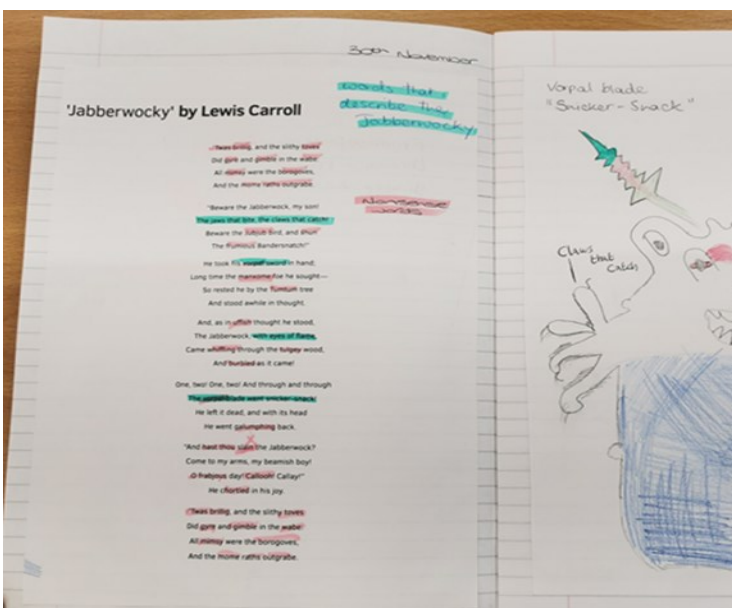 30th November
'Jabberwocky' by Lewis Carroll
words that
describe the
Jabberwocky
'Twas brillig, and the slithy toves
Did gyre and gimble in the wabe:
All mimsy were the borogoves,
And the mome raths outgrabe.
Nonsense
words
"Beware the Jabberwock, my son!
The jaws that bite, the claws that catch!
Beware the Jubjub bird, and shun
The frumious Bandersnatch!"
He took his vorpal sword in hand;
Long time the manxome foe he sought—
So rested he by the Tumtum tree
And stood awhile in thought.
And, as in uffish thought he stood,
The Jabberwock, with eyes of flame,
Came whiffling through the tulgey wood,
And burbled as it came!
One, two! One, two! And through and through
The vorpal blade went snicker-snack!
He left it dead, and with its head
He went galumphing back.
"And hast thou slain the Jabberwock?
Come to my arms, my beamish boy!
O frabjous day! Callooh! Callay!"
He chortled in his joy.
'Twas brillig, and the slithy toves
Did gyre and gimble in the wabe:
All mimsy were the borogoves,
And the mome raths outgrabe.
Vorpal blade
"Snicker-Snack"
Claws
that
Catch